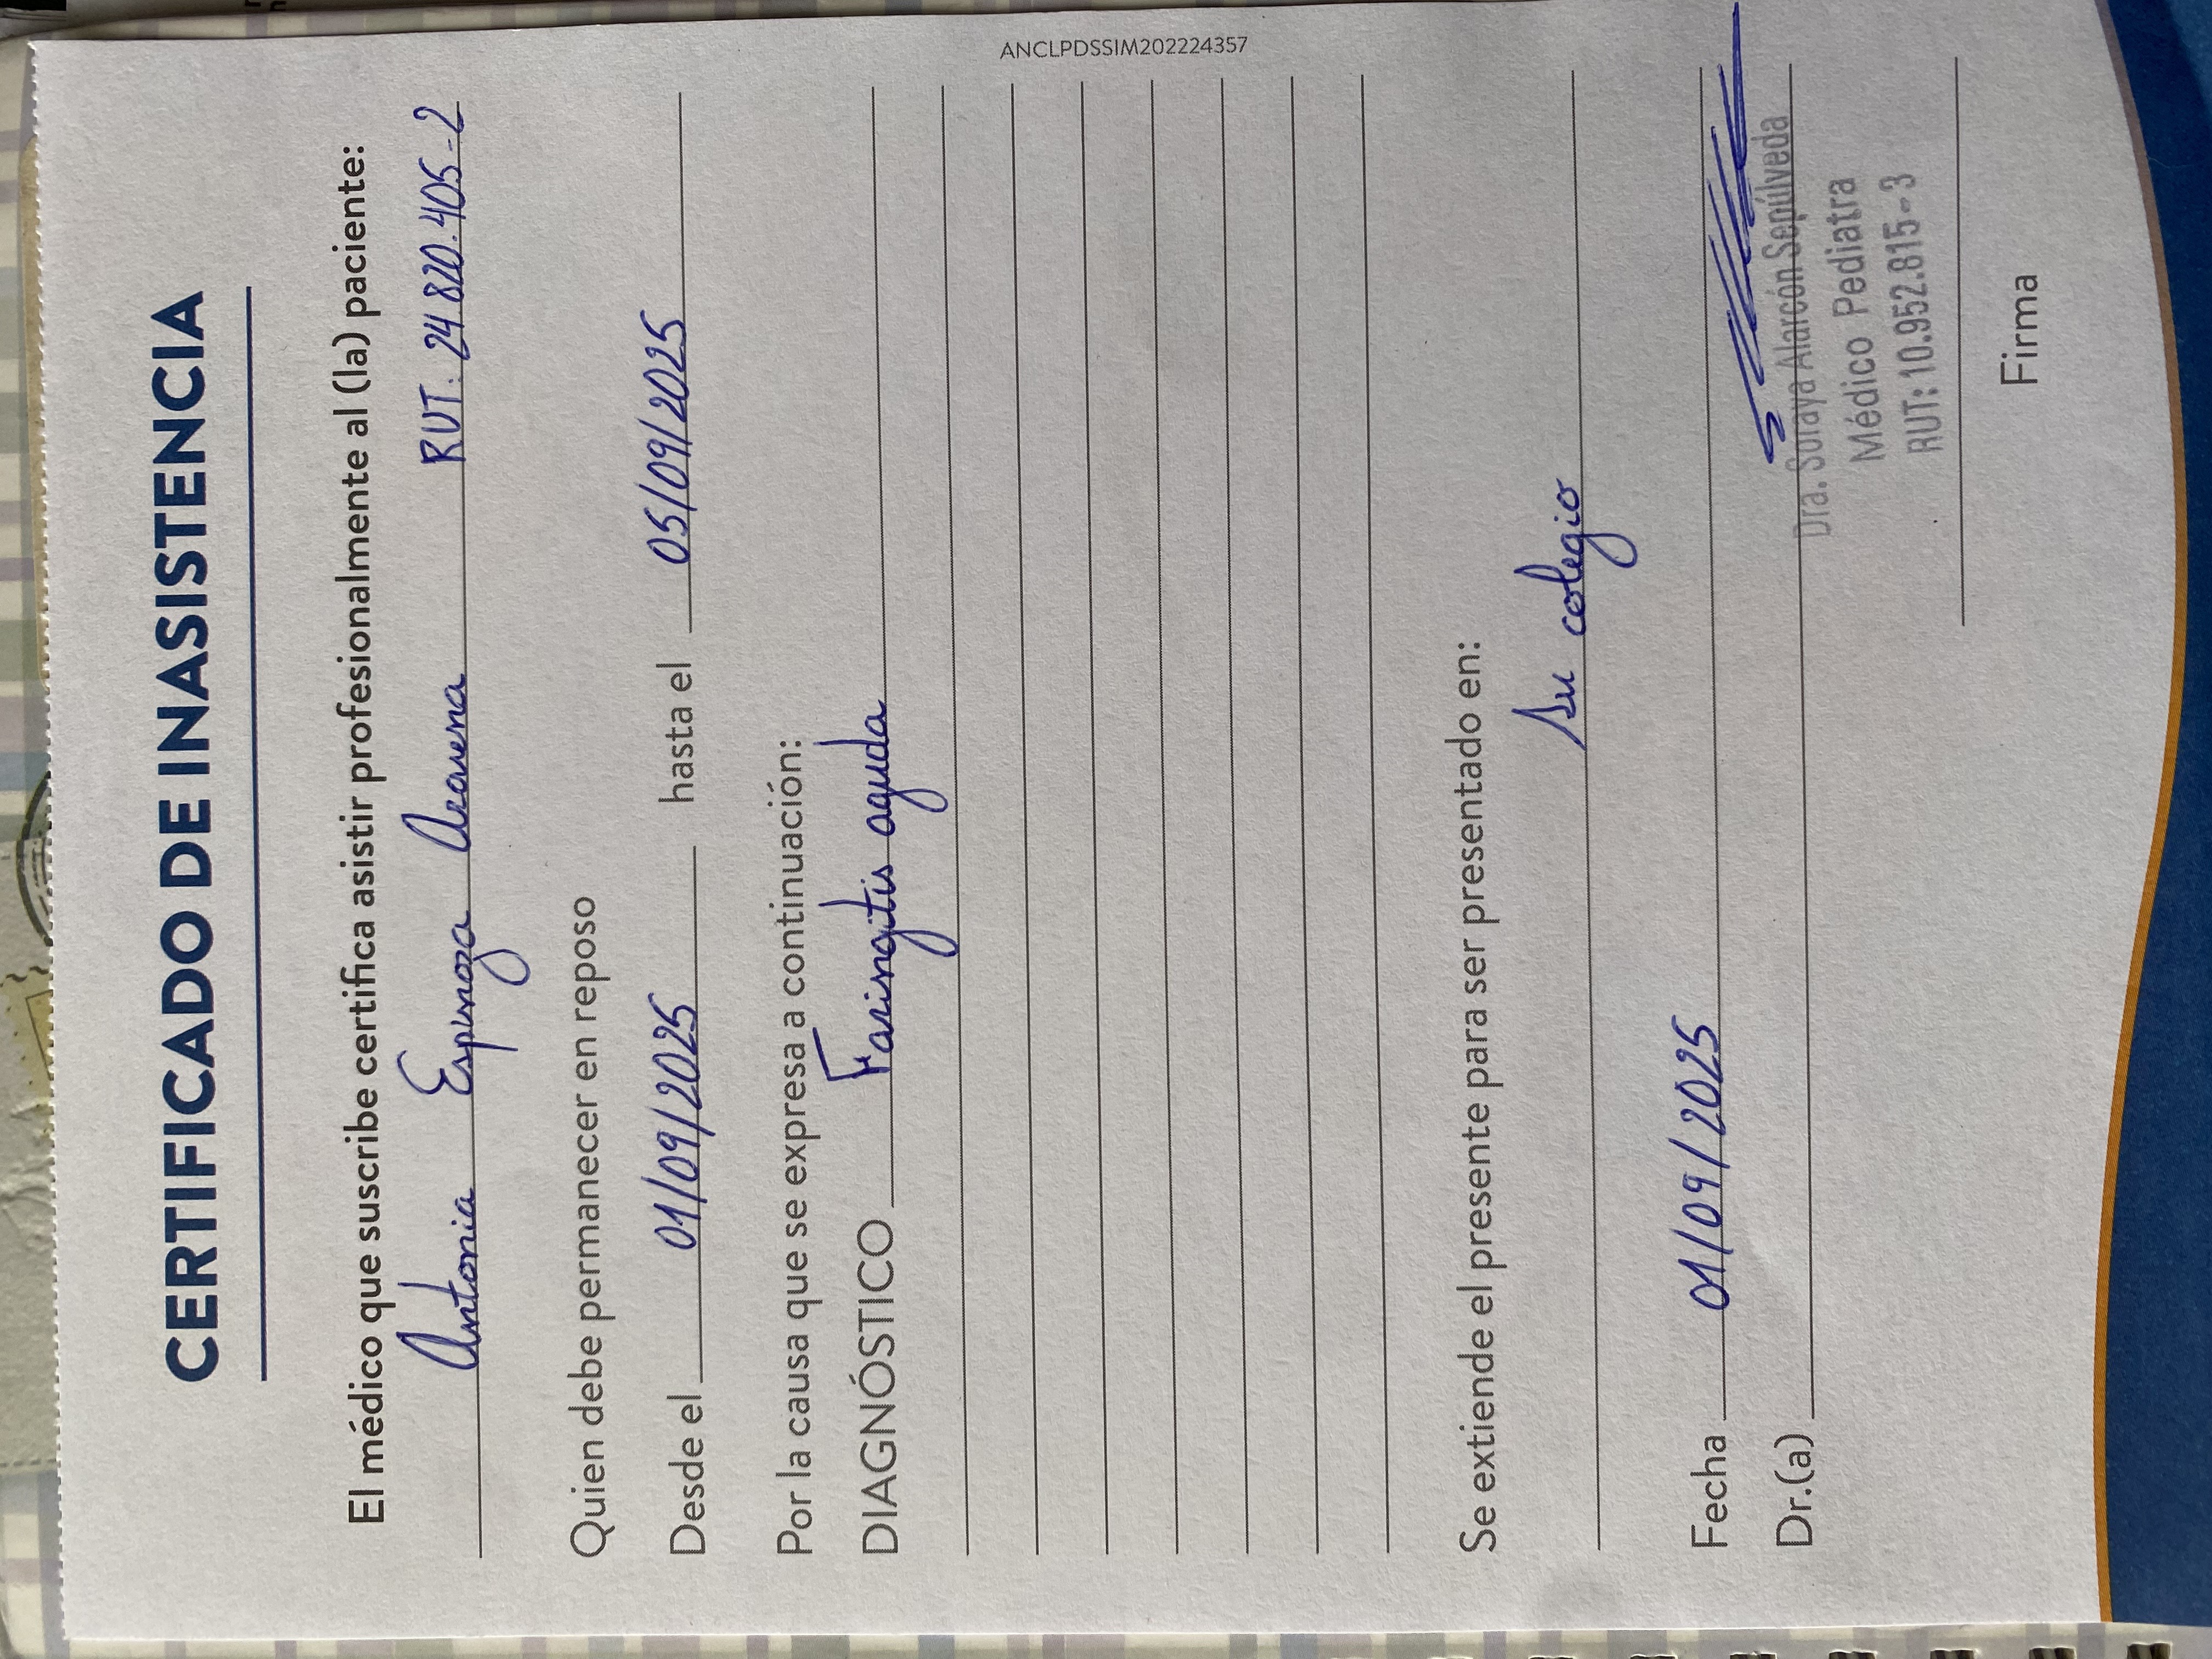 CERTIFICADO DE INASISTENCIA
El médico que suscribe certifica asistir profesionalmente al (la) paciente:
Antonia Espinoza Aravena RUT. 24 820.405-2
Quien debe permanecer en reposo
Desde el 01/09/2025 hasta el 05/09/2025
Por la causa que se expresa a continuación:
DIAGNÓSTICO Faringitis aguda
Se extiende el presente para ser presentado en:
su colegio
Fecha 01/09/2025
Dr.(a)
Dra. Soraya Alarcón Sepúlveda
Médico Pediatra
RUT: 10.952.815-3
Firma
ANCLPDSSIM202224357